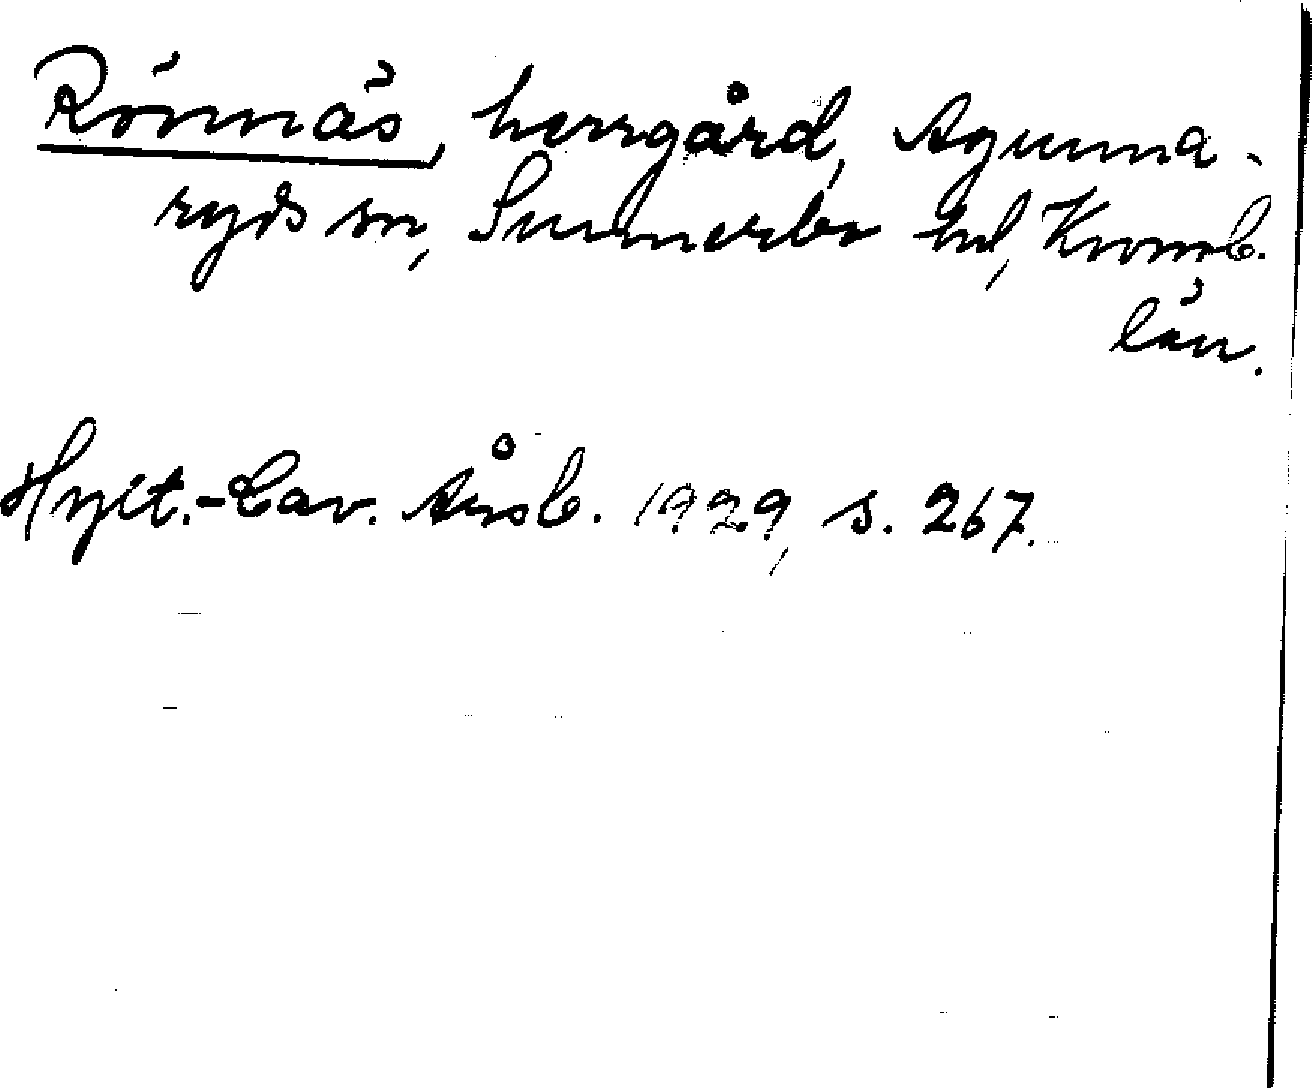 Rönnäs, herrgård, Agunna-
ryds sn, Sunnerbo hd, Kronob.
län.
Hylt.-Cav. Årsb. 1929, s. 267.